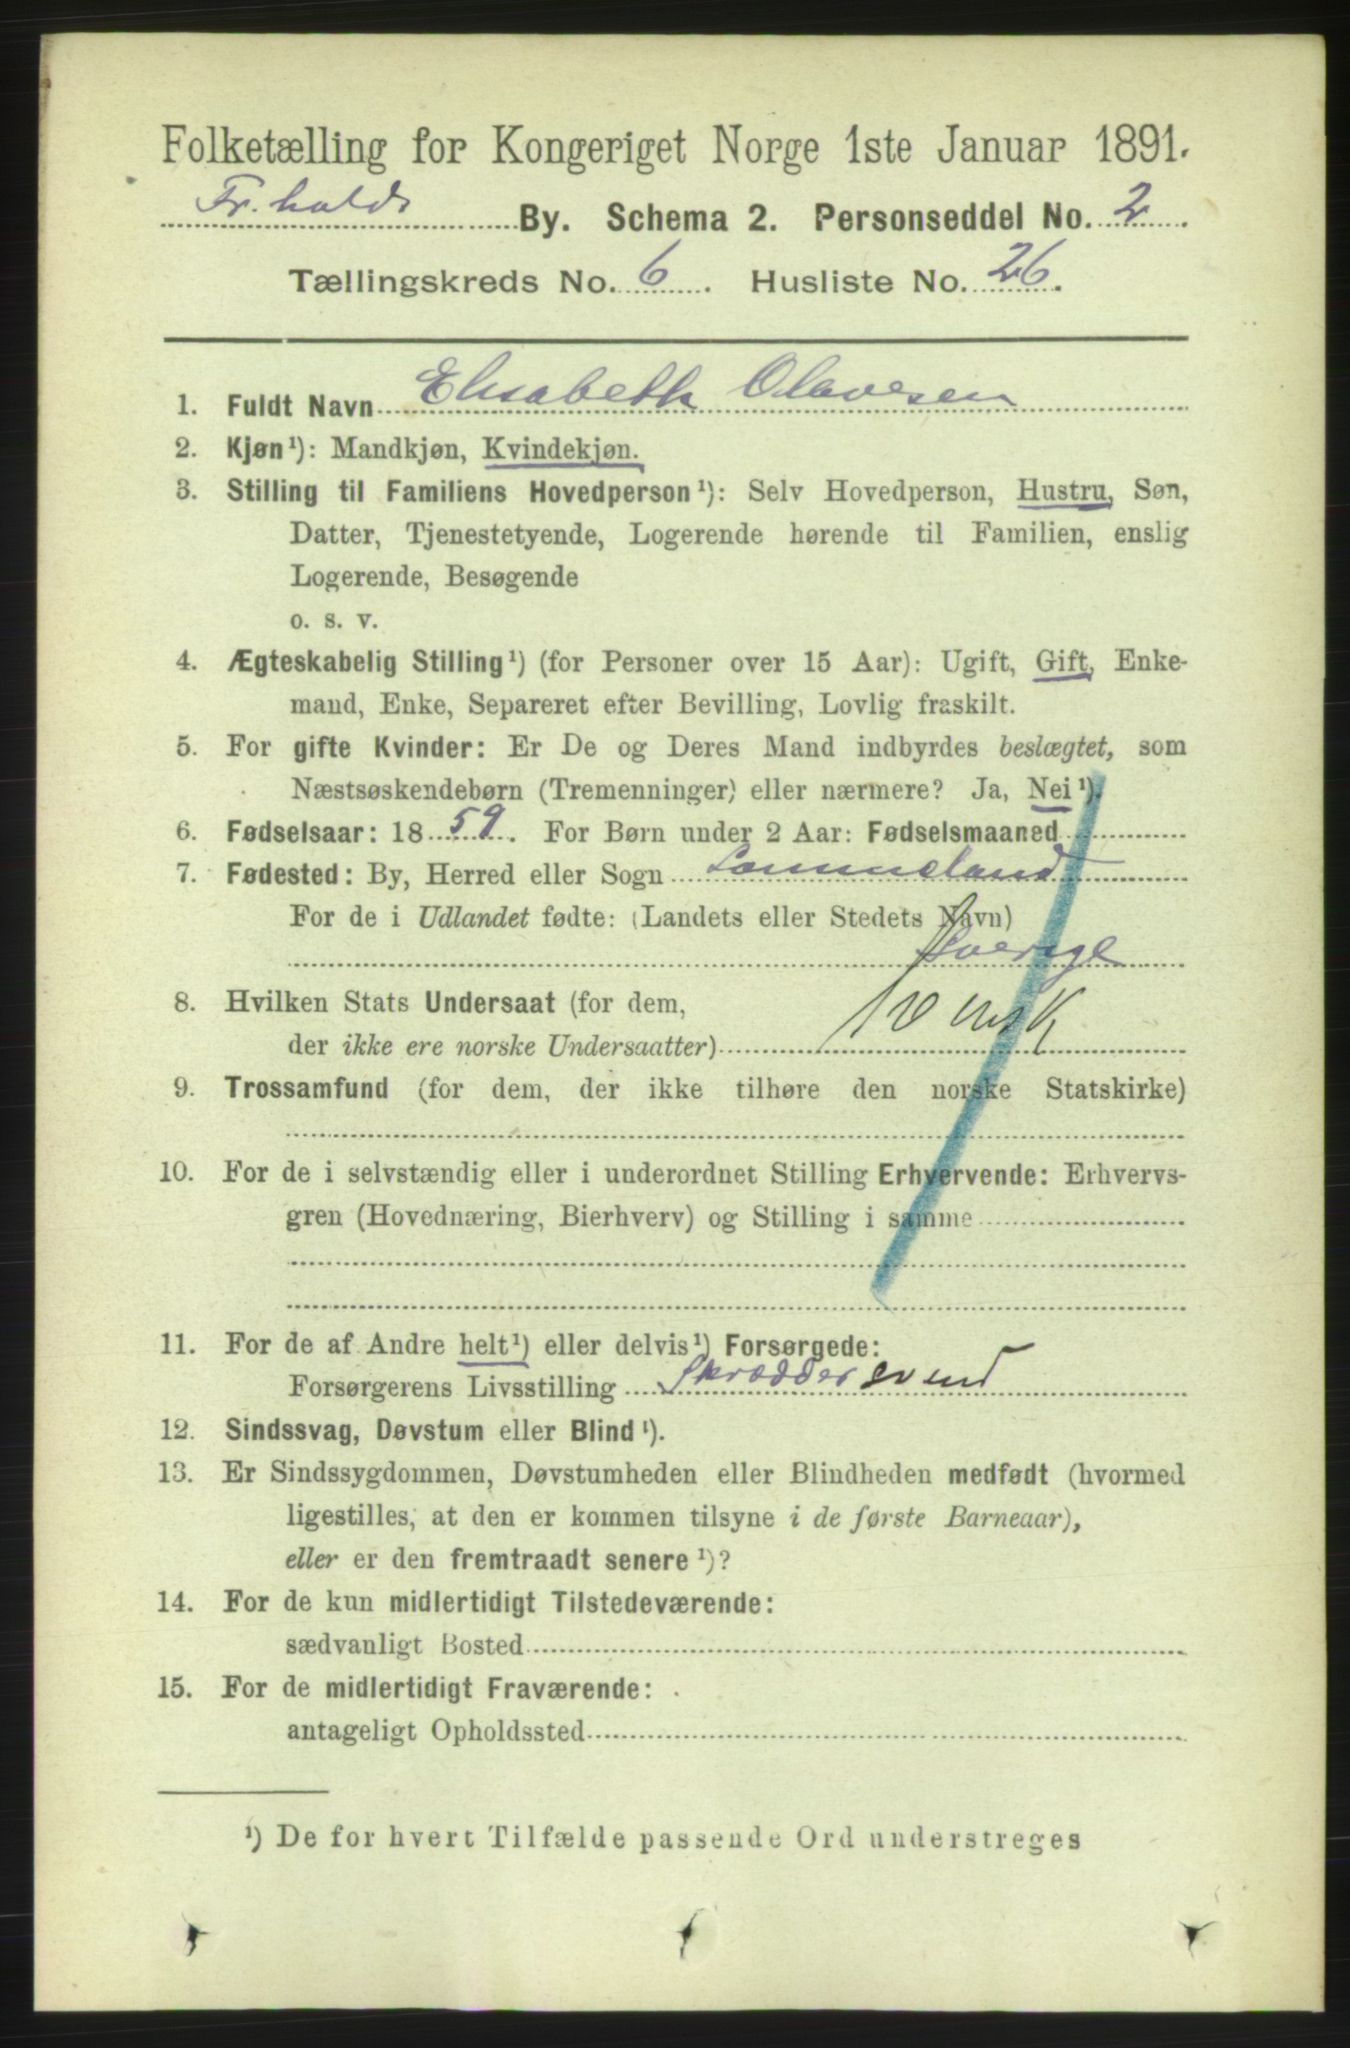 Folketælling for Kongeriget Norge 1ste Januar 1891.
Fr.halds By. Schema 2. Personseddel No. 2.
Tællingskreds No. 6. Husliste No. 26.
1. Fuldt Navn Elisabeth Olavesen
2. Kjøn¹): Mandkjøn, Kvindekjøn.
3. Stilling til Familiens Hovedperson¹): Selv Hovedperson, Hustru, Søn,
Datter, Tjenestetyende, Logerende hørende til Familien, enslig
Logerende, Besøgende
o. s. v.
4. Ægteskabelig Stilling¹) (for Personer over 15 Aar): Ugift, Gift, Enke-
mand, Enke, Separeret efter Bevilling, Lovlig fraskilt.
5. For gifte Kvinder: Er De og Deres Mand indbyrdes beslægtet, som
Næstsøskendebørn (Tremenninger) eller nærmere? Ja, Nei¹).
6. Fødselsaar: 1859. For Børn under 2 Aar: Fødselsmaaned
7. Fødested: By, Herred eller Sogn
For de i Udlandet fødte: (Landets eller Stedets Navn)
Sverige
8. Hvilken Stats Undersaat (for dem,
der ikke ere norske Undersaatter) svensk
9. Trossamfund (for dem, der ikke tilhøre den norske Statskirke)
10. For de i selvstændig eller i underordnet Stilling Erhvervende: Erhvervs-
gren (Hovednæring, Bierhverv) og Stilling i samme
11. For de af Andre helt¹) eller delvis¹) Forsørgede:
Forsørgerens Livsstilling Skræddersvend
12. Sindssvag, Døvstum eller Blind¹).
13. Er Sindssygdommen, Døvstumheden eller Blindheden medfødt (hvormed
ligestilles, at den er kommen tilsyne i de første Barneaar),
eller er den fremtraadt senere¹)?
14. For de kun midlertidigt Tilstedeværende:
sædvanligt Bosted
15. For de midlertidigt Fraværende:
antageligt Opholdssted
¹) De for hvert Tilfælde passende Ord understreges